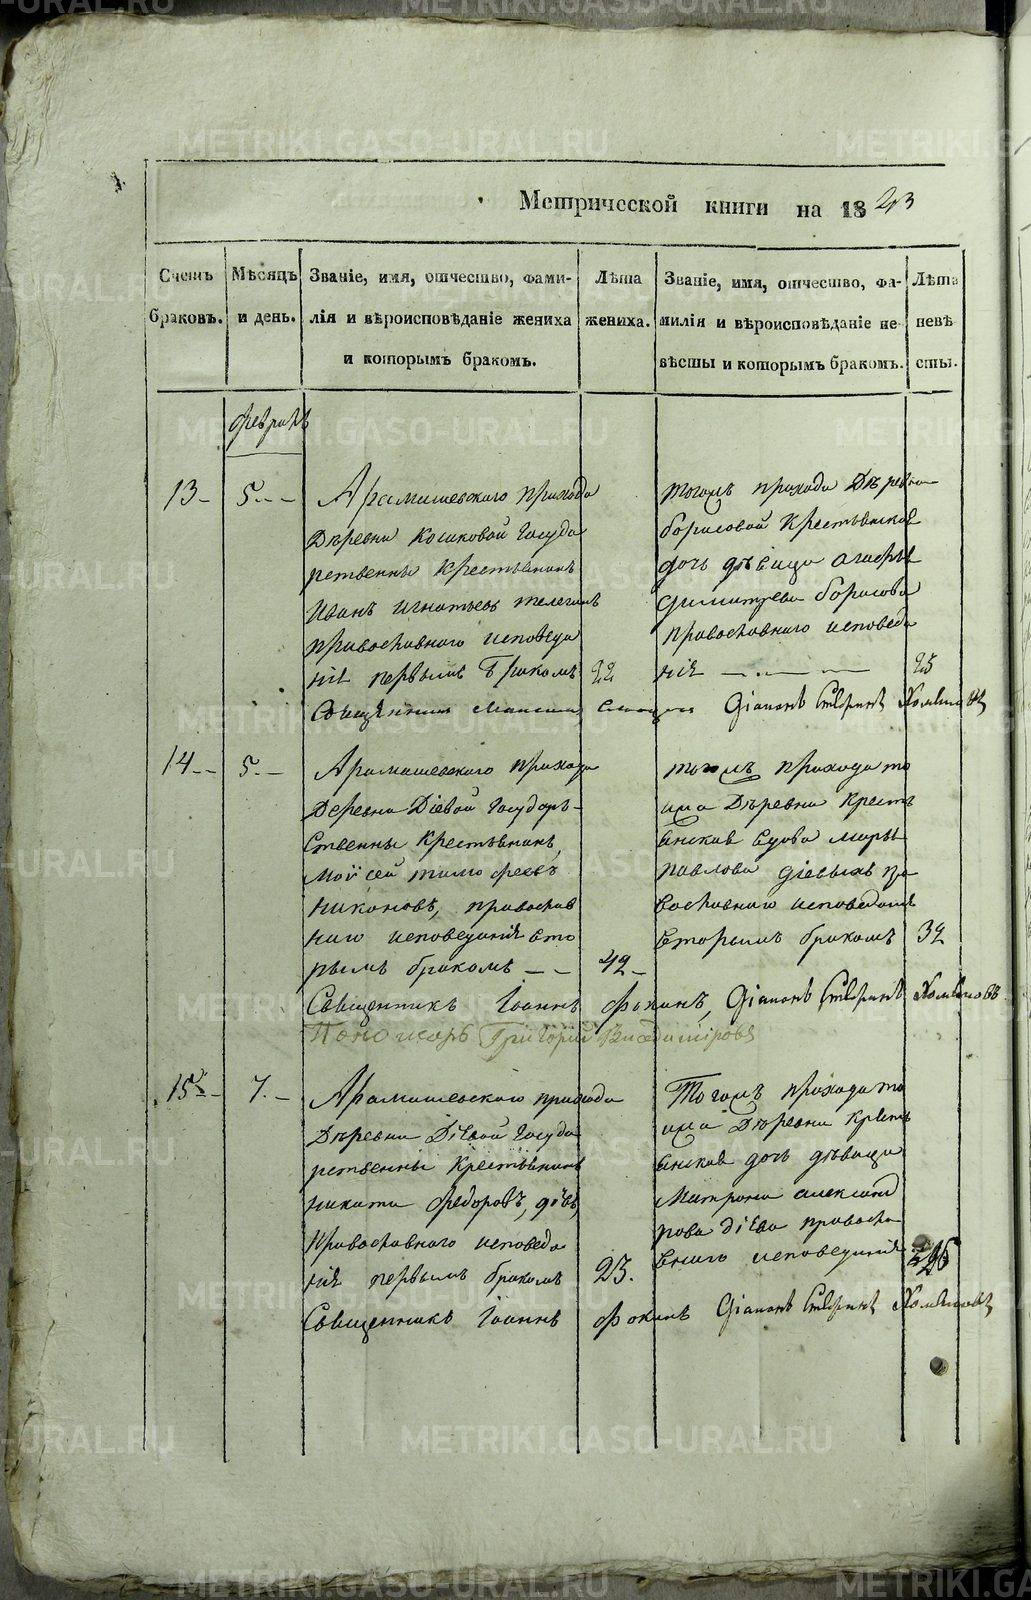 Метрической книги на 1843
Счетъ браковъ.
Мѣсяцъ и день.
Званіе, имя, отчество, фамилія и вѣроисповѣданіе жениха и которымъ бракомъ.
Лѣта жениха.
Званіе, имя, отчество, фамилія и вѣроисповѣданіе невѣсты и которымъ бракомъ.
Лѣта невѣсты.
февраль
13 5
Арамашевскаго прихода
Деревни Косиковой Госуда
рственны Крестьянинъ
Иванъ Игнатьевъ Телегинъ
православнаго исповѣда
нія первымъ бракомъ 22
тогожъ прихода Деревни
борисовой Крестьянская
дочь дѣвица Агафья
Димитрева борисова
православнаго исповеда
нія 25
Священникъ Діаконъ Стефанъ Хомяковъ
14 5
Арамашевскаго прихода
Деревни Діевой Государ-
ственны Крестьянинъ,
Мойсей тимофеевъ
никоновъ, православ
наго исповеданія вто
рымъ бракомъ 42
тогожъ прихода то
яжа Деревни Кресть
янская вдова Марья
павлова діевыхъ пра
вославнаго исповеданія
вторымъ бракомъ 32
Священникъ Іоаннъ Фокинъ, Діаконъ Стефанъ Хомяковъ
Пономарь Григорій
15 7
Арамашевскаго прихода
Деревни Діевой Госуда
рственны Крестьянинъ
никита федоровъ, діевъ,
Православнаго исповеда
нія первымъ бракомъ 23.
Тогожъ прихода то
яжа Деревни Кресть
янская дочь дѣвица
Матрона александ
рова діева правосла
внаго исповеданія 26
Священникъ Іоаннъ Фокинъ Діаконъ Стефанъ Хомяковъ
METRIKI.GASO-URAL.RU